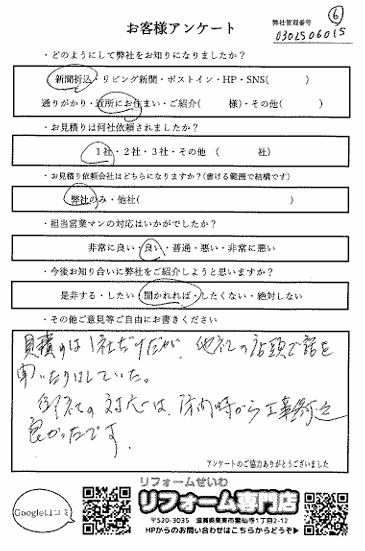 お客様アンケート
弊社管理番号 ⑥
0302506015
・どのようにして弊社をお知りになりましたか?
新聞折込・リビング新聞・ポストイン・HP・SNS( )
通りがかり・近所にお住まい・ご紹介( 様)・その他( )
・お見積りは何社依頼されましたか?
1社・2社・3社・その他 ( 社)
・お見積り依頼会社はどちらになりますか?(書ける範囲で結構です)
弊社のみ・他社( )
・担当営業マンの対応はいかがでしたか?
非常に良い・良い・普通・悪い・非常に悪い
・今後お知り合いに弊社をご紹介しようと思いますか?
是非する・したい・聞かれれば・したくない・絶対しない
・その他ご意見等ご自由にお書きください
見積りは1社だけだが、他社の店頭で話を
聞いたりはしていた。
御社の対応は、訪問時から工事終了迄
良かったです。
アンケートのご協力ありがとうございました
Google口コミ
リフォームせいわ
リフォーム専門店
〒520-3035 滋賀県栗東市霊仙寺1丁目2-12
HPからのお問い合わせはこちらからどうぞ